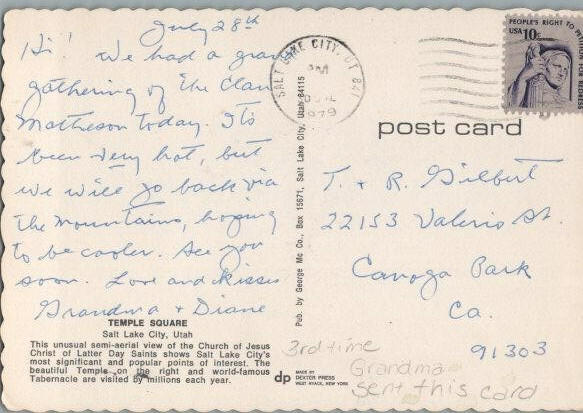 July 28th
Hi! We had a grand
gathering of the Clan
Matheson today. It's
been very hot, but
we will go back via
the mountains, hoping
to be cooler. See you
soon. Love and kisses
Grandma + Diane
TEMPLE SQUARE
Salt Lake City, Utah
This unusual semi-aerial view of the Church of Jesus
Christ of Latter Day Saints shows Salt Lake City's
most significant and popular points of interest. The
beautiful Temple on the right and world-famous
Tabernacle are visited by millions each year.
Pub. by George Mc Co., Box 15671, Salt Lake City, Utah 84115
SALT LAKE CITY, UT 841
PM
1979
PEOPLE'S RIGHT TO PETITION FOR REDRESS
USA 10c
post card
T. + R. Gilbert
22153 Valerio St.
Canoga Park
Ca.
91303
3rd time
Grandma
sent this card
dp
MADE BY
DEXTER PRESS
WEST NYACK, NEW YORK